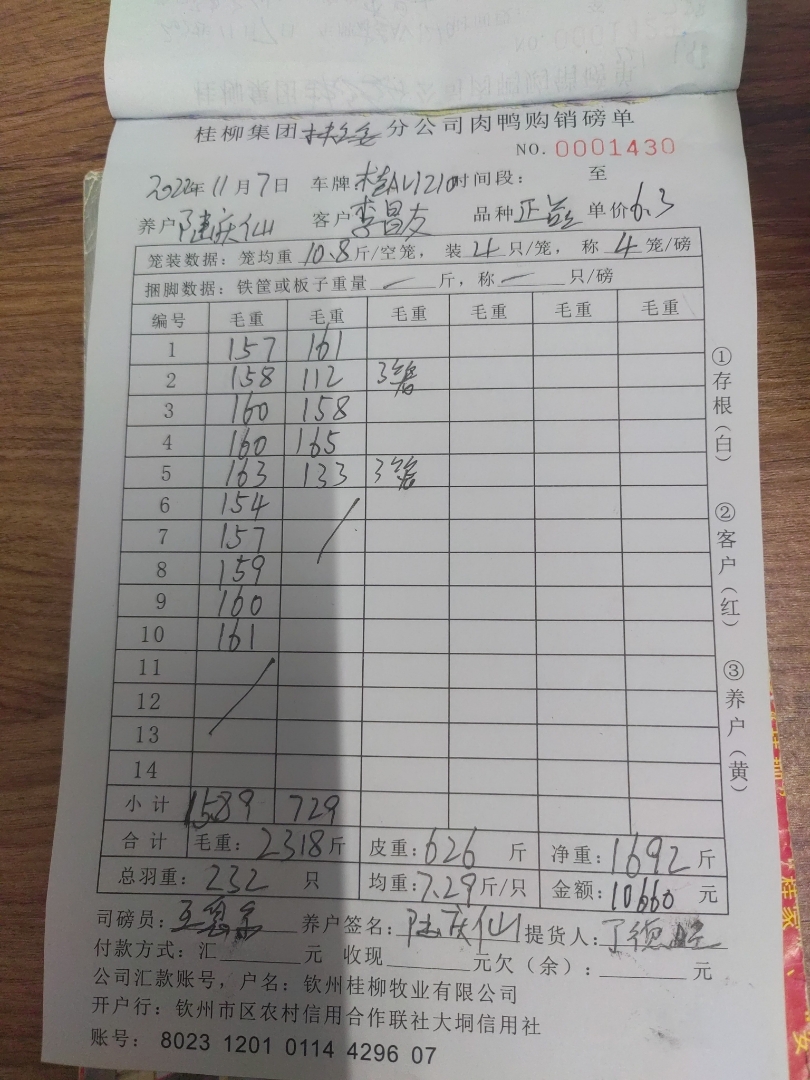 桂柳集团 分公司肉鸭购销磅单
NO. 0001430
2022年11月7日 车牌桂AU1210时间段： 至
养户陆庆仙 客户李昌友 品种正品 单价6.3
笼装数据：笼均重10.8斤/空笼，装4只/笼，称4笼/磅
捆脚数据：铁筐或板子重量—斤，称—只/磅
编号 毛重 毛重 毛重 毛重 毛重 毛重
1 157 161
2 158 112 3笼
3 160 158
4 160 165
5 163 133 3笼
6 154
7 157
8 159
9 160
10 161
11
12
13
14
小计 1589 729
合计 毛重：2318斤 皮重：626斤 净重：1692斤
总羽重：232只 均重：7.29斤/只 金额：10660元
司磅员： 养户签名：陆庆仙 提货人：
付款方式：汇______元 收现______元欠（余）：______元
公司汇款账号，户名：钦州桂柳牧业有限公司
开户行：钦州市区农村信用合作联社大垌信用社
账号： 8023 1201 0114 4296 07
①存根（白）
②客户（红）
③养户（黄）